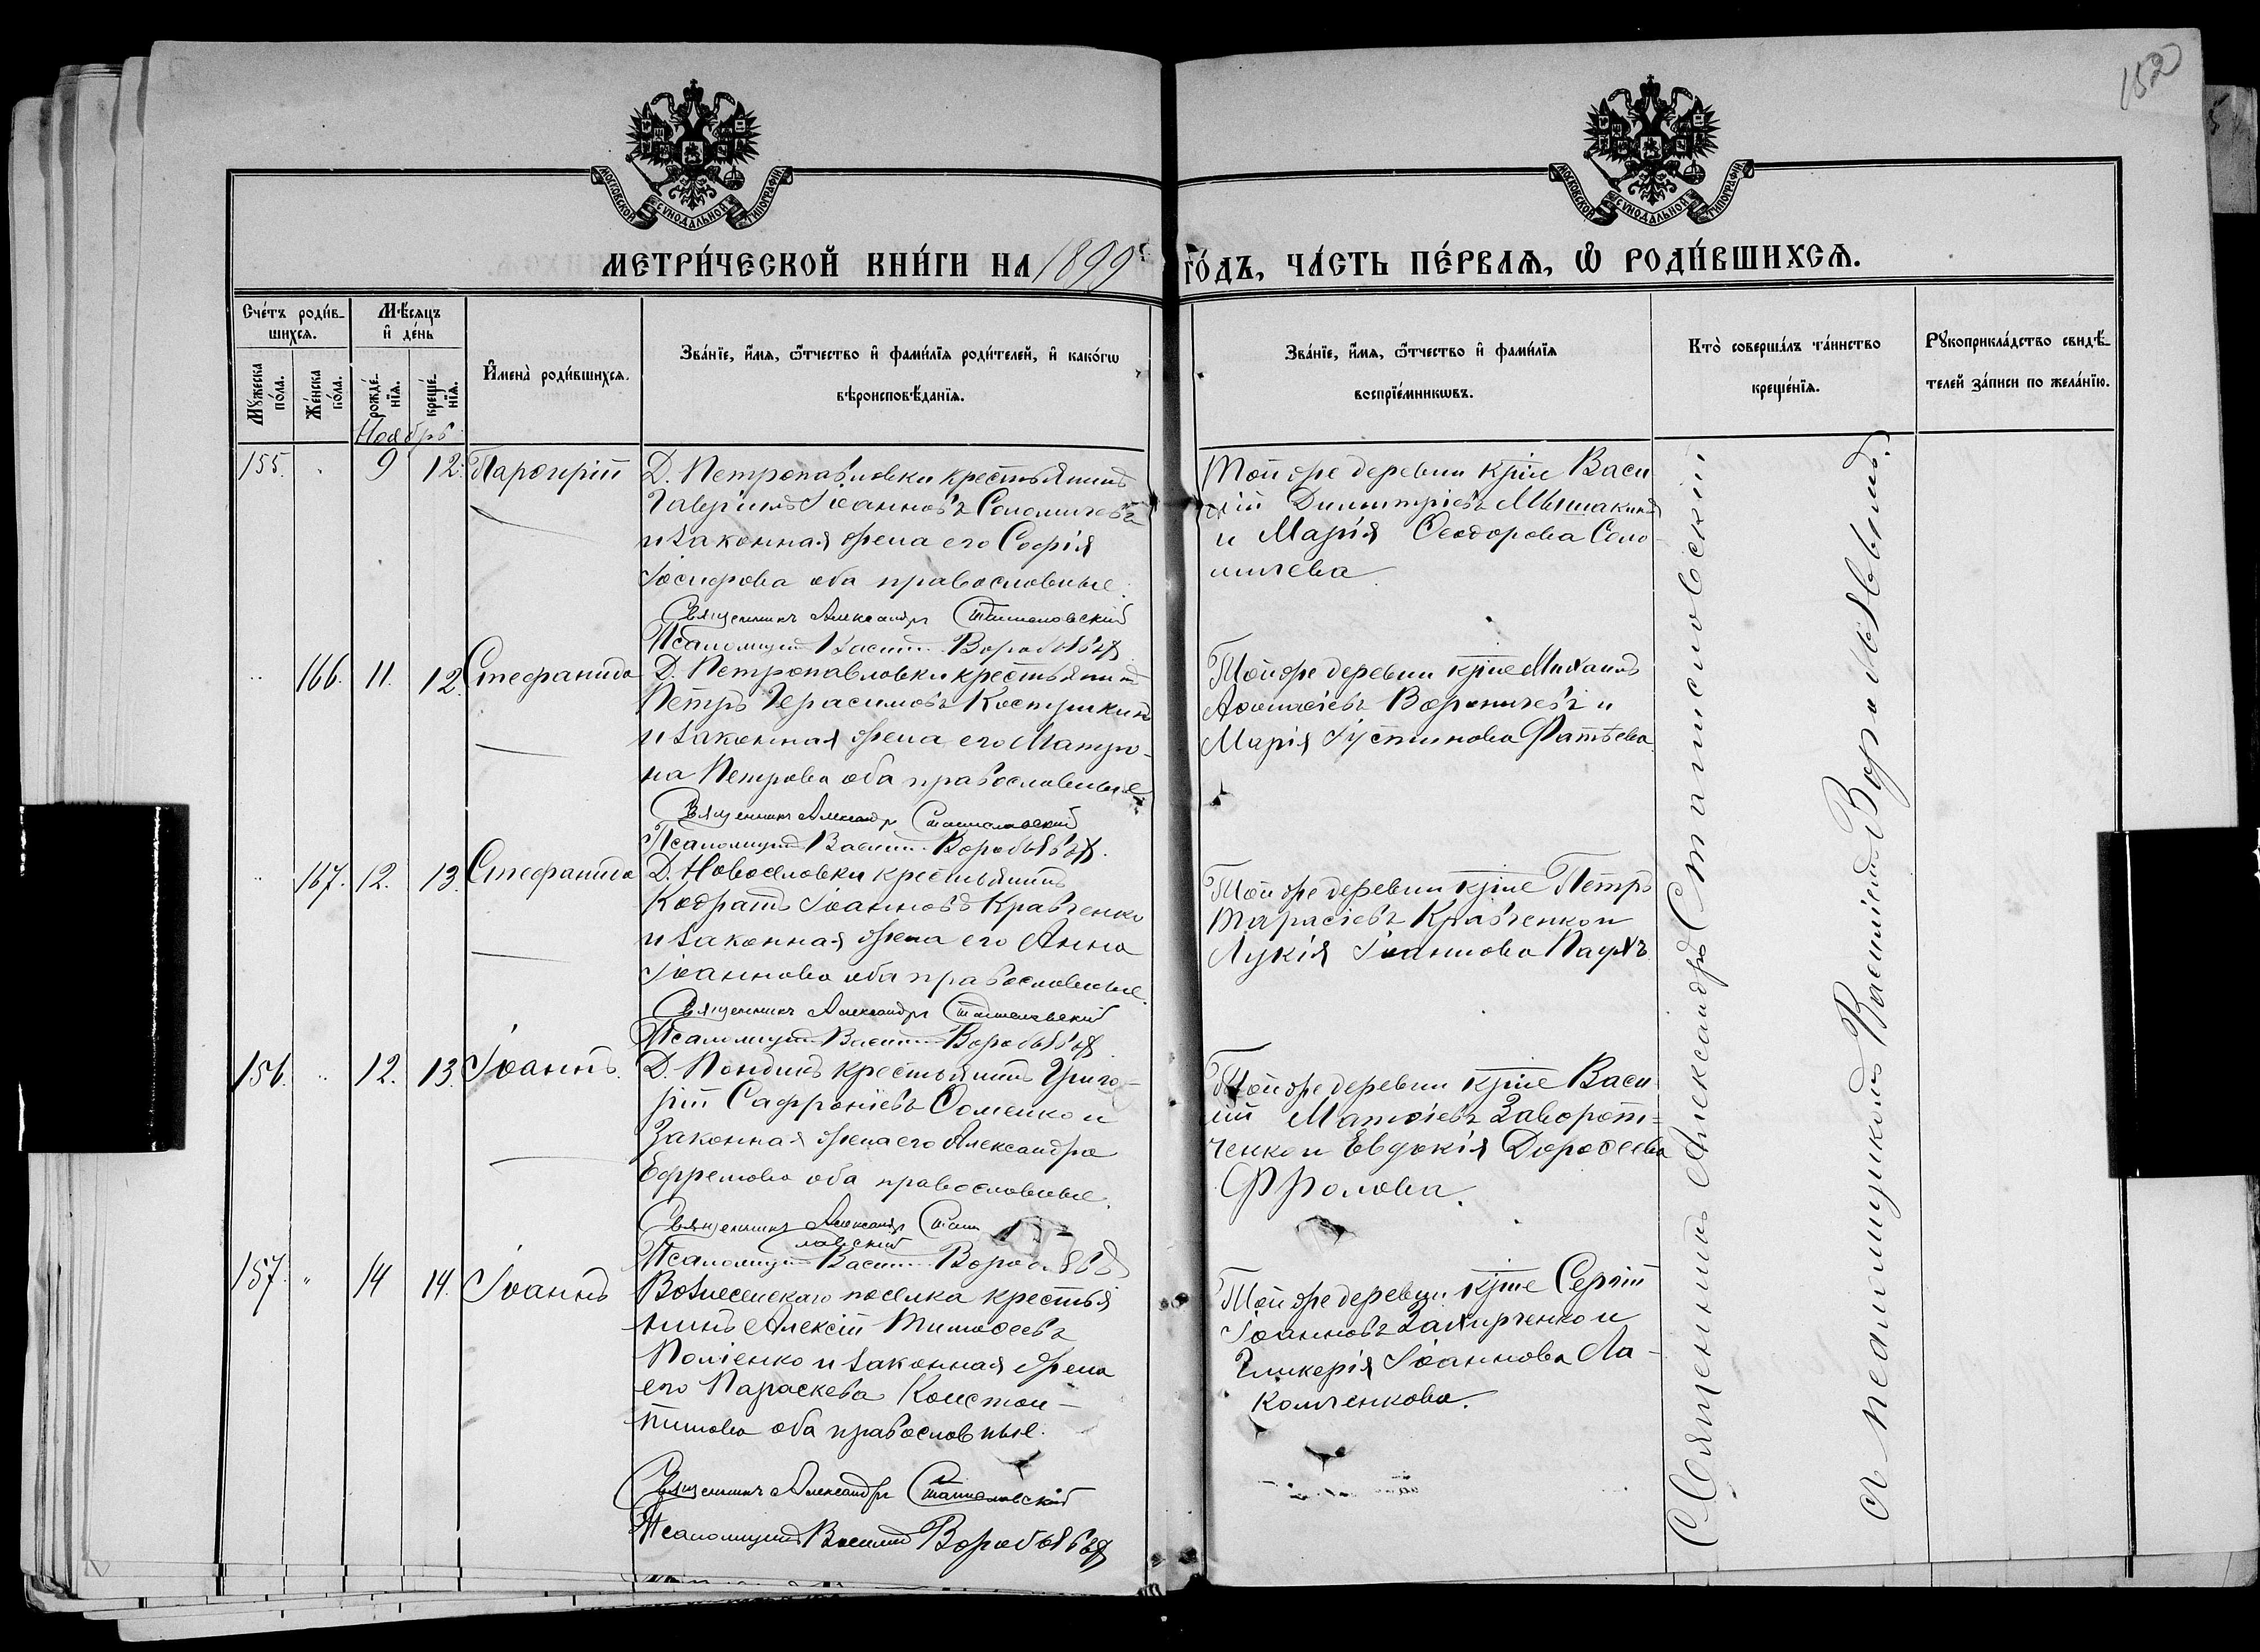 152
МОСКОВСКОЙ СѴНОДАЛЬНОЙ ТИПОГРАФІИ
МОСКОВСКОЙ СѴНОДАЛЬНОЙ ТИПОГРАФІИ
МЕТРИ́ЧЕСКОЙ КНИ́ГИ НА 1899 ГО́ДЪ, ЧА́СТЬ ПЕ́РВАѦ, Ѽ РОДИ́ВШИХСѦ.
Сче́тъ роди́в-
шихсѧ.
Мꙋ́жеска по́ла.
Же́нска по́ла.
Мѣ́сяцъ
и҆ де́нь
рожде́-
нїѧ.
креще́-
нїѧ.
Ноябрь
И҆мена̀ роди́вшихсѧ.
Зва́нїе, и҆́мѧ, ѻ҆́тчество и҆ фами́лїѧ роди́телей, и҆ како́гѡ
вѣроисповѣ́данїѧ.
Зва́нїе, и҆́мѧ, ѻ҆́тчество и҆ фами́лїѧ
воспрїе́мникѡвъ.
Кто̀ соверша́лъ та́инство
креще́нїѧ.
Рꙋкоприкла́дство свидѣ́-
телей за́писи по жела́нїю.
155. 9 12. Парѳирій
Д. Петропавловки крестьянинъ
Гавріилъ Іоанновъ Соломичевъ
и законная жена его Софія
Іосифова оба православные.
Священникъ Александръ Станиславский
Псаломщикъ Васил. Воробьевъ
Той же деревни крѣне Васи
лій Димитріевъ Мышакинъ
и Марія Ѳеодорова Соло
мичева
166. 11. 12. Стефанида
Д. Петропавловки крестьянинъ
Петръ Герасимовъ Костушкинъ
и законная жена его Матро-
на Петрова оба православные
Священникъ Александръ Станиславский
Псаломщикъ Васил. Воробьевъ.
Той же деревни крѣне Михаилъ
Аѳанасіевъ Вороничевъ и
Марія Іустинова Фатѣева
167. 12. 13. Стефанида
Д. Новоселовки крестьянинъ
Кодратъ Іоанновъ Кравченко
и законная жена его Анна
Іоаннова оба православные.
Священникъ Александръ Станиславский
Псаломщикъ Васил. Воробьевъ
Той же деревни крѣне Петръ
Тарасіевъ Кравченко и
Лукія Іоаннова
156. 12. 13. Іоаннъ.
Д. крестьянинъ Григо-
рій Сафроніевъ Ѳоменко и
Законная жена его Александра
Ефремова оба православные.
Священникъ Александръ Стани
славский
Псаломщикъ Васил. Воробьевъ
Той же деревни крѣне Васи
лій Матѳіевъ Заворот=
ченко и Евдокія Дороѳеева
Фролова.
157. " 14 14. Іоаннъ
Вознесенскаго поселка крестья
нинъ Алексій Тимоѳеевъ
и законная жена
его Параскева Констан-
тинова оба православные.
Священникъ Александръ Станиславскій
Псаломщикъ Василій Воробьевъ
Той же деревни крѣне Сергій
Іоанновъ Захирченко и
Гликерія Іоаннова Ла-
комченкова.
Священникъ Александръ Станиславскій
съ псаломщикомъ Василіемъ Воробьевымъ.